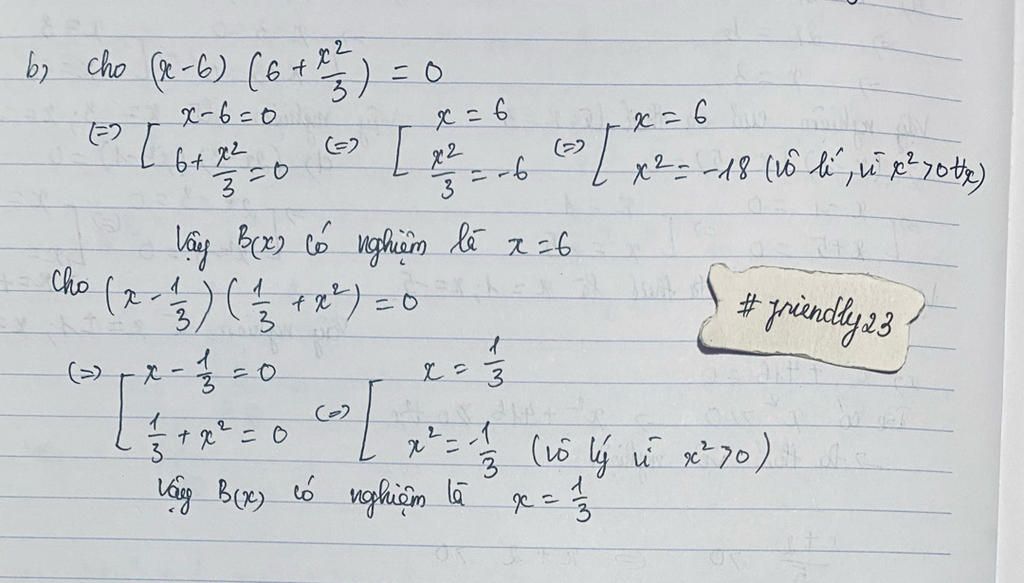 b, Cho (x-6) (6 + x²/3) = 0
(=) [ x-6=0 ; 6+ x²/3 = 0 (=) [ x = 6 ; x²/3 = -6 (=) [ x = 6 ; x² = -18 (vô lí, vì x² > 0 ∀x)
Vậy B(x) có nghiệm là x = 6
Cho (x - 1/3) (1/3 + x²) = 0
# friendly23
(=) [ x - 1/3 = 0 ; 1/3 + x² = 0 (=) [ x = 1/3 ; x² = -1/3 (vô lý vì x² > 0)
Vậy B(x) có nghiệm là x = 1/3